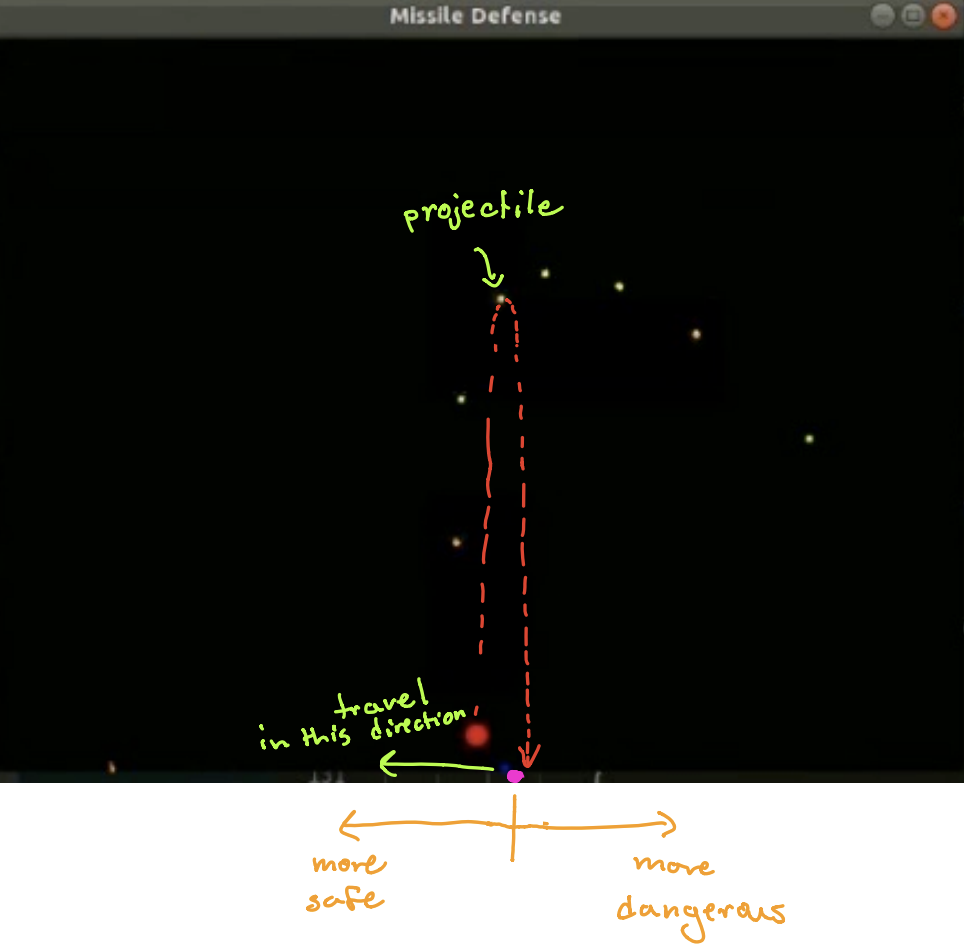 Missile Defense
projectile
travel
in this direction
131
more
safe
more
dangerous